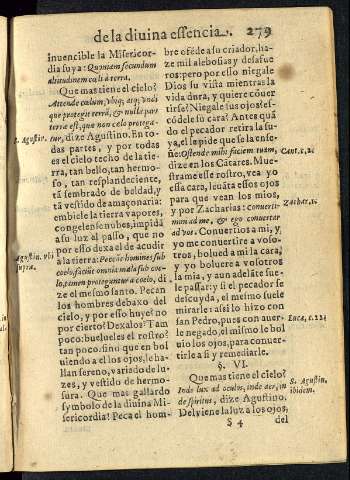 de la diuina essencia. 279
inuencible la Misericor-
dia suya: Quoniam secundum
altitudinem cæli à terra.
Que mas tiene el cielo?
Attende cælum, vbiq; atq; vndi
que protegit terrã, & nulla pars
terræ est, que non celo protega-
S. Agustin.
tur, dize Agustino. En to-
das partes, y por todas
es el cielo techo de la tie-
rra, tan bello, tan hermo-
so, tan resplandeciente,
tã sembrado de beldad, y
tã vestido de amaçonaria:
embiele la tierra vapores,
congelense nubes, impidã
a su luz al passo, que no
por esso dexa el de acudir
a la tierra: Peccẽt homines sub
Agustin. vbi
suprà.
coelo, faciãt omnia mala sub coe-
lo, tamen proteguntur a coelo, di
ze el mesmo santo. Pecan
los hombres debaxo del
cielo, y por esso huye? no
por cierto? Dexalos? Tam
poco: bueluelos el rostro?
tan poco: sino que en bol
uiendo a el los ojos, le ha-
llan sereno, variado de lu-
zes, y vestido de hermo-
sura. Que mas gallardo
symbolo de la diuina Mi-
sericordia! Peca el hom-
bre ofẽde a su criador, ha-
ze mil aleuosias y desafue
ros: pero por esso niegale
Dios su vista mientras la
vida dura, y quiere cõuer
tirse? Niegale sus ojos? es-
cõdele su cara? Antes quã
do el pecador retira la su-
ya, el se le pide que se la ense-
ñe: Ostende mihi faciem tuam,
Cant. 2.
dize en los Cãtares. Mue-
strame esse rostro, vea yo
essa cara, leuãta essos ojos
para que vean los mios,
y por Zacharias: conuerti-
Zachar. 1.
mini ad me, & ego conuertar
ad vos. Conuertios a mi, y
yo me conuertire a voso-
tros, bolued a mi la cara;
y yo boluere a vosotros
la mia, y aun adelãte sue-
le passar: y si el pecador se
descuyda, el mesmo suele
mirarle: assi lo hizo con
san Pedro, pues con auer-
Luca. c. 22.
le negado, el mismo le bol
uio los ojos, para conuer-
tirle a si y remediarle.
§. VI.
Que mas tiene el cielo?
S. Agustin.
ibidem.
Inde lux ad oculos, inde aer, in
de spiritus, dize Agustino.
Del viene la luz a los ojos,
S 4 del